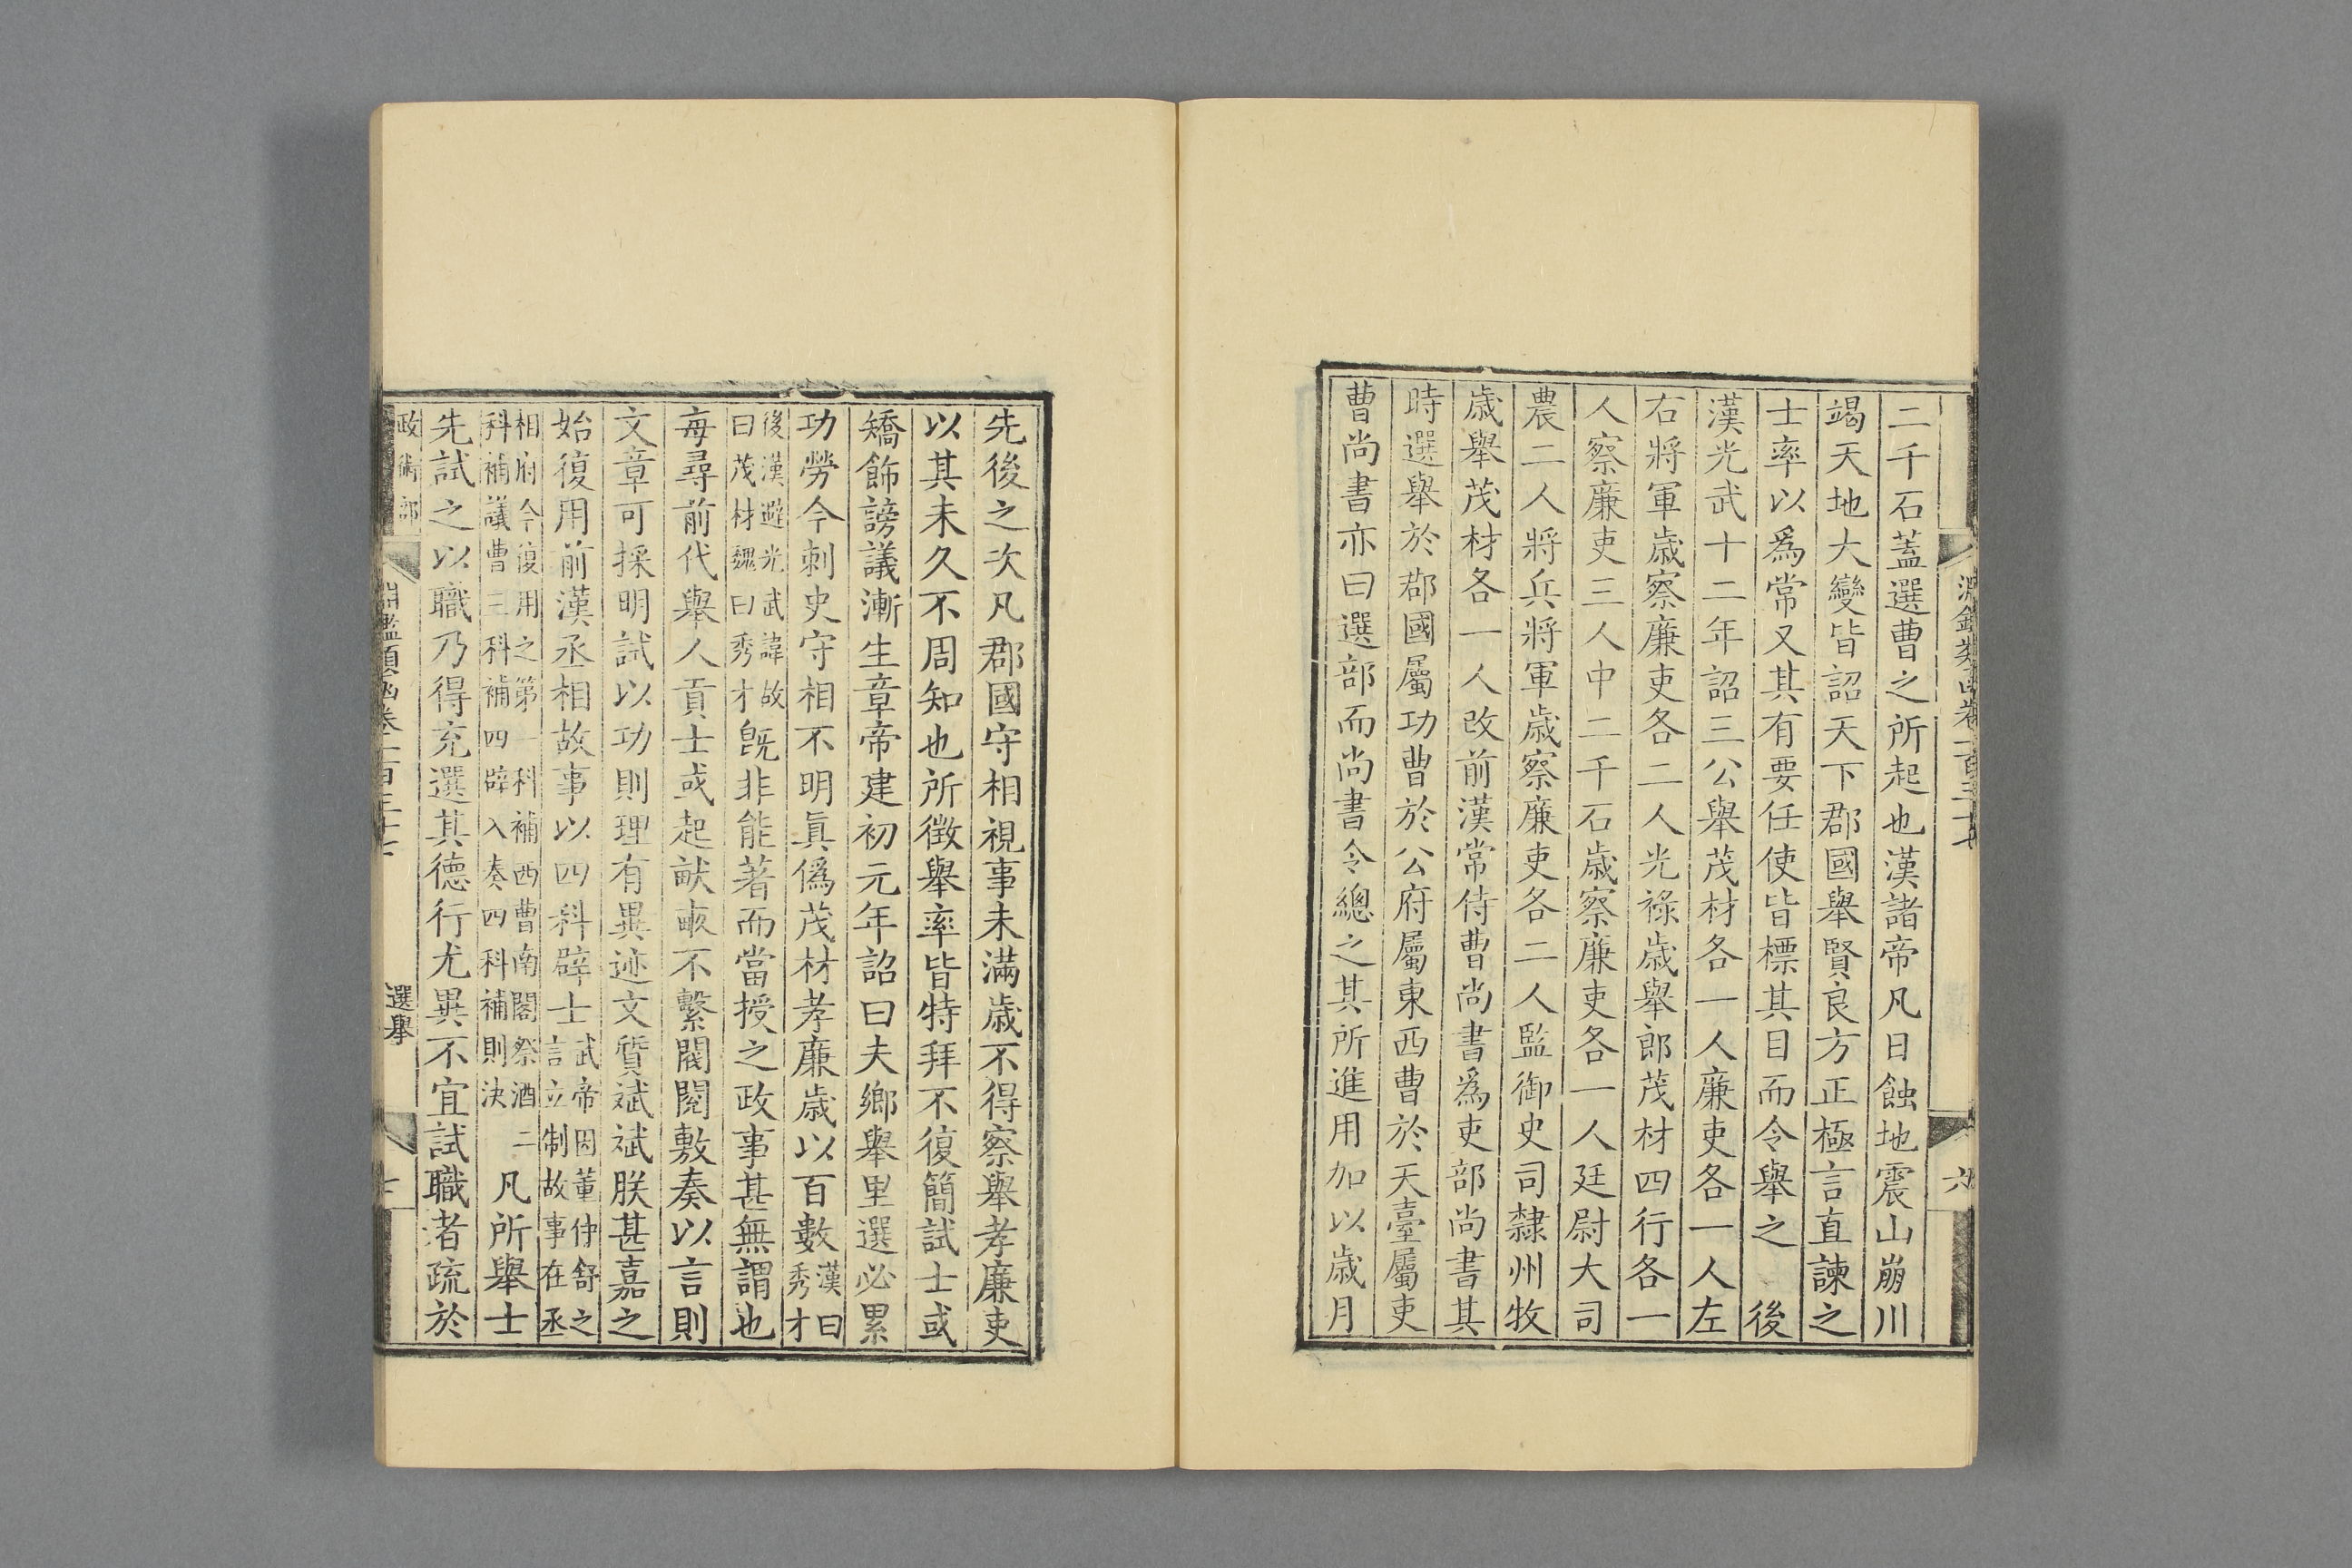 二千石蓋選曹之所起也漢諸帝凡日蝕地震山崩川
竭天地大變皆詔天下郡國舉賢良方正極言直諫之
士率以爲常又其有要任使皆標其目而令舉之　後
漢光武十二年詔三公舉茂材各一人廉吏各一人左
右將軍歲察廉吏各二人光祿歲舉郎茂材四行各一
人察廉吏三人中二千石歲察廉吏各一人廷尉大司
農二人將兵將軍歲察廉吏各二人監御史司隸州牧
歲舉茂材各一人改前漢常侍曹尚書爲吏部尚書其
時選舉於郡國屬功曹於公府屬東西曹於天臺屬吏
曹尚書亦曰選部而尚書令總之其所進用加以歲月
先後之次凡郡國守相視事未滿歲不得察舉孝廉吏
以其未久不周知也所徵舉率皆特拜不復簡試士或
矯飾謗議漸生章帝建初元年詔曰夫鄉舉里選必累
功勞今刺史守相不明眞僞茂材孝廉歲以百數漢曰秀才
後漢避光武諱故曰茂材魏曰秀才旣非能著而當授之政事甚無謂也
每尋前代舉人貢士或起畎畝不繫閥閱敷奏以言則
文章可採明試以功則理有異迹文質斌斌朕甚嘉之
始復用前漢丞相故事以四科辟士武帝因董仲舒之言立制故事在丞
相府今復用之第一科補西曹南閣祭酒二科補議曹三科補四辟入奏四科補則決凡所舉士
先試之以職乃得充選其德行尤異不宜試職者疏於
政術部
選舉